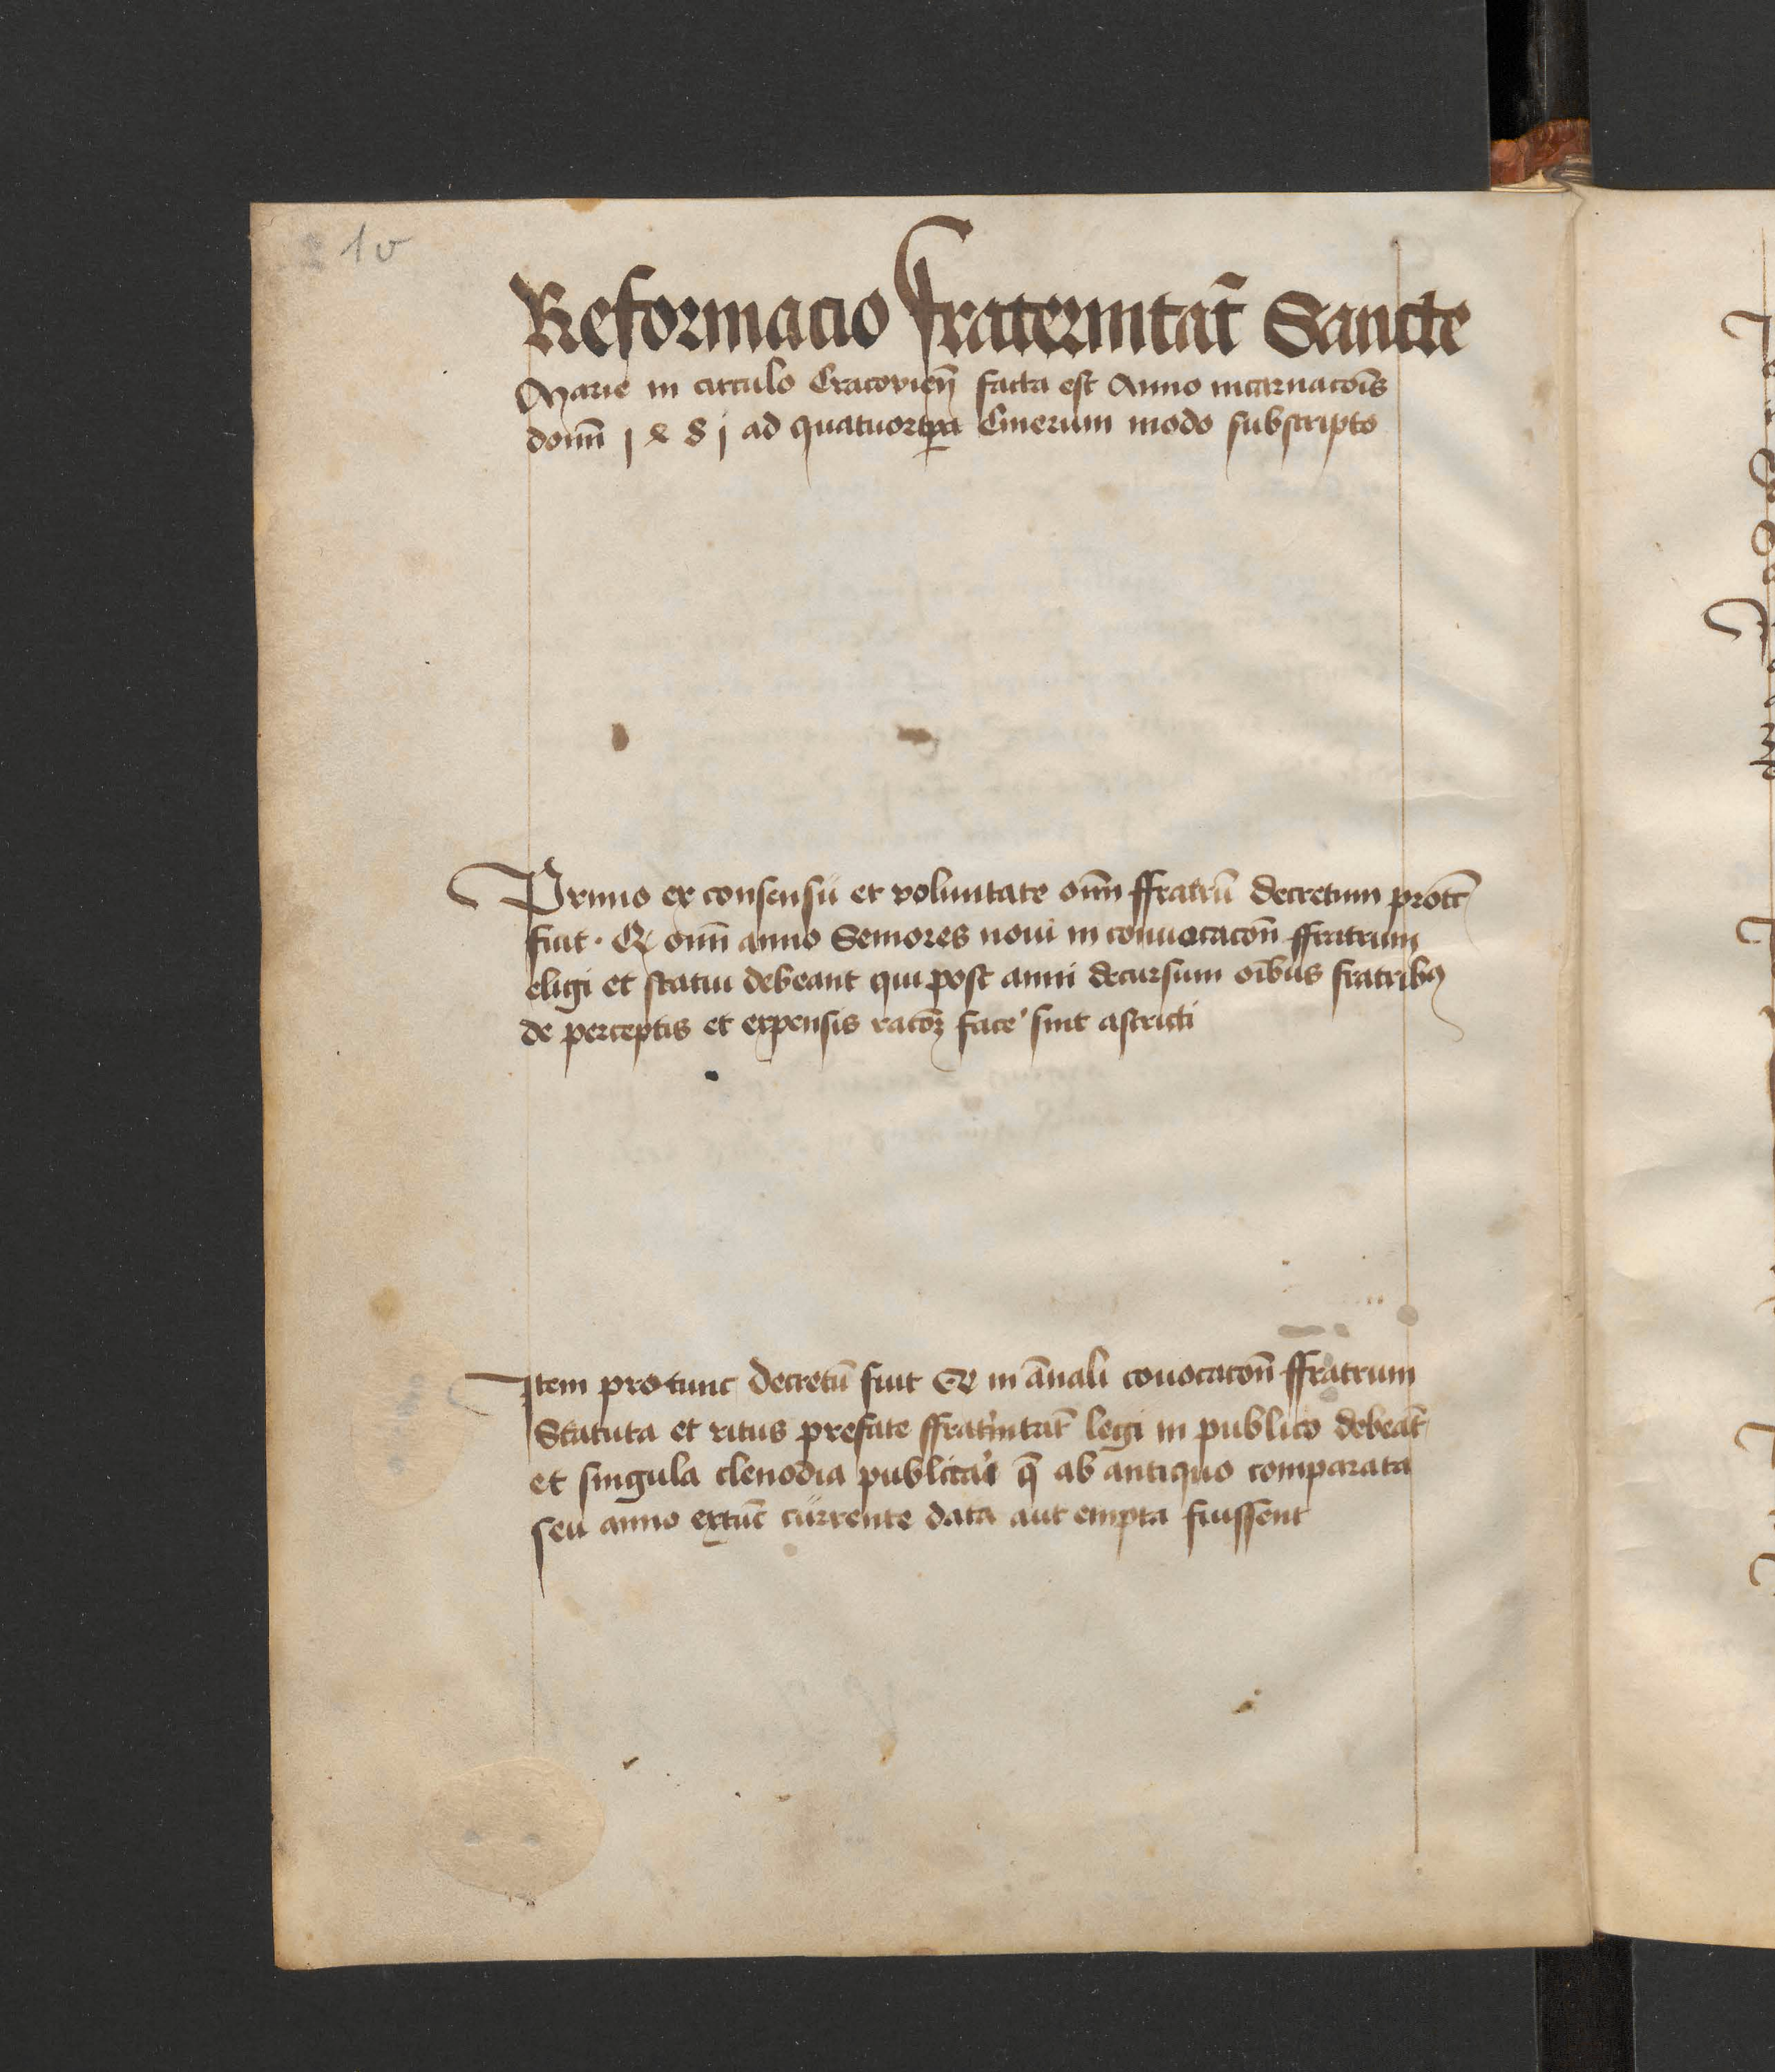 1v
Reformacio fraternitat̃ Sancte
Marie in circulo Cracovien̄ facta est Anno incarnacōis
domī 1481 ad quatuortp̲a Cinerum modo subscripto
Primo ex consensu et voluntate om̄i ffratrū decretum protūc
fuit · Q̷ om̄i anno Seniores noui in conuocacōn̄ ffratrum
eligi et statui debeant qui post anni decursum oībus fratribꝯ
de perceptis et expensis racōꝫ face͛ sint astricti
Item protunc decretū fuit Q̷ in āuali cōuocacōn̄ ffratrum
Statuta et ritus prefate ffrat͛nitat̄ legi in publico debeāt
et singula clenodia publica͛i q̄ ab antiquo comparata
seu anno extūc currente data aut empta fuissent